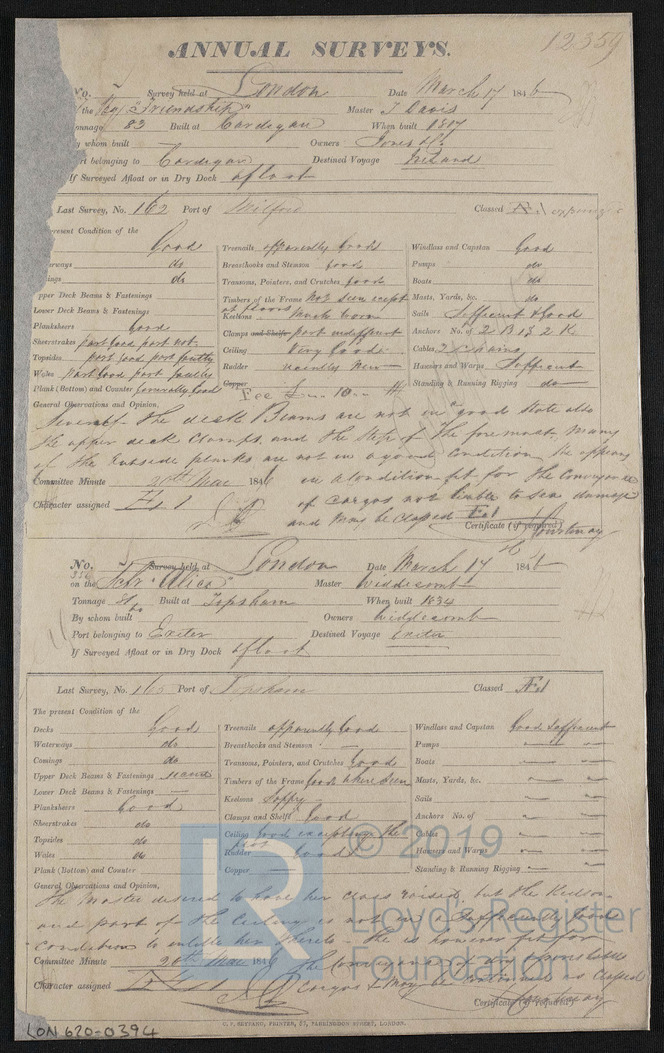 12359
ANNUAL SURVEYS.
No. Survey held at London Date March 17 1846
the "Friendship" Master J Davis
Tonnage 83 Built at Cardigan When built 1807
By whom built Owners Jones & Co
Port belonging to Cardigan Destined Voyage Ireland
If Surveyed Afloat or in Dry Dock afloat
Last Survey, No. 162 Port of Milford Classed Æ1
Present Condition of the
Good Treenails apparently Good Windlass and Capstan Good
Waterways do Breasthooks and Stemson Good Pumps do
Comings do Transoms, Pointers, and Crutches Good Boats do
Upper Deck Beams & Fastenings Timbers of the Frame not seen except at floors Masts, Yards, &c. do
Lower Deck Beams & Fastenings Keelsons Much worn Sails Sufficient & Good
Planksheers Good Clamps and Shelfs part indifferent Anchors No. of 2 B 1 S 2 K
Sheerstrakes part Good part not Ceiling Very Good Cables 2 chains
Topsides part Good part faulty Rudder recently New Hawsers and Warps Sufficient
Wales Part Good part faulty Copper Standing & Running Rigging do
Plank (Bottom) and Counter Generally Good Fee £ 10
General Observations and Opinion,
Several of the deck Beams are not in a good state also
the upper deck Clamps, and the Step of the foremast, many
of the Outside planks are not in a good condition She appears
Committee Minute 20th Mar 1846 in a condition fit for the Conveyance
of cargos not liable to sea damage
Character assigned E 1
and may be Classed E 1 Certificate (if required) Courtenay
No. Survey held at London Date March 17 1846
on the Schr "Alice" Master Widdecomb
Tonnage Built at Topsham When built 1834
By whom built Owners Widdecomb
Port belonging to Exeter Destined Voyage Exeter
If Surveyed Afloat or in Dry Dock afloat
Last Survey, No. Port of Topsham Classed Æ1
The present Condition of the
Decks Good Treenails apparently Good Windlass and Capstan Good Sufficient
Waterways do Breasthooks and Stemson Pumps
Comings do Transoms, Pointers, and Crutches Good Boats
Upper Deck Beams & Fastenings Timbers of the Frame Good where seen Masts, Yards, &c.
Lower Deck Beams & Fastenings Keelsons Sappy Sails
Planksheers Good Clamps and Shelfs Good Anchors No. of
Sheerstrakes do Ceiling Good excepting the Cables
Topsides do Rudder Good Hawsers and Warps
Wales do Copper Standing & Running Rigging
Plank (Bottom) and Counter
General Observations and Opinion,
The Master desired to have her class raised, but the Keelson
and part of the Ceiling is not in a Sufficiently Good
condition to entitle her thereto - She is however fit for
Committee Minute 20th Mar 1846 the Conveyance of dry & perishable
Character assigned Cargos & may be continued as Classed
Certificate (if required) Courtenay
C. F. SEYFANG, PRINTER, 57, FARRINGDON STREET, LONDON.
LON 620-0394
© 2019
Lloyd's Register
Foundation